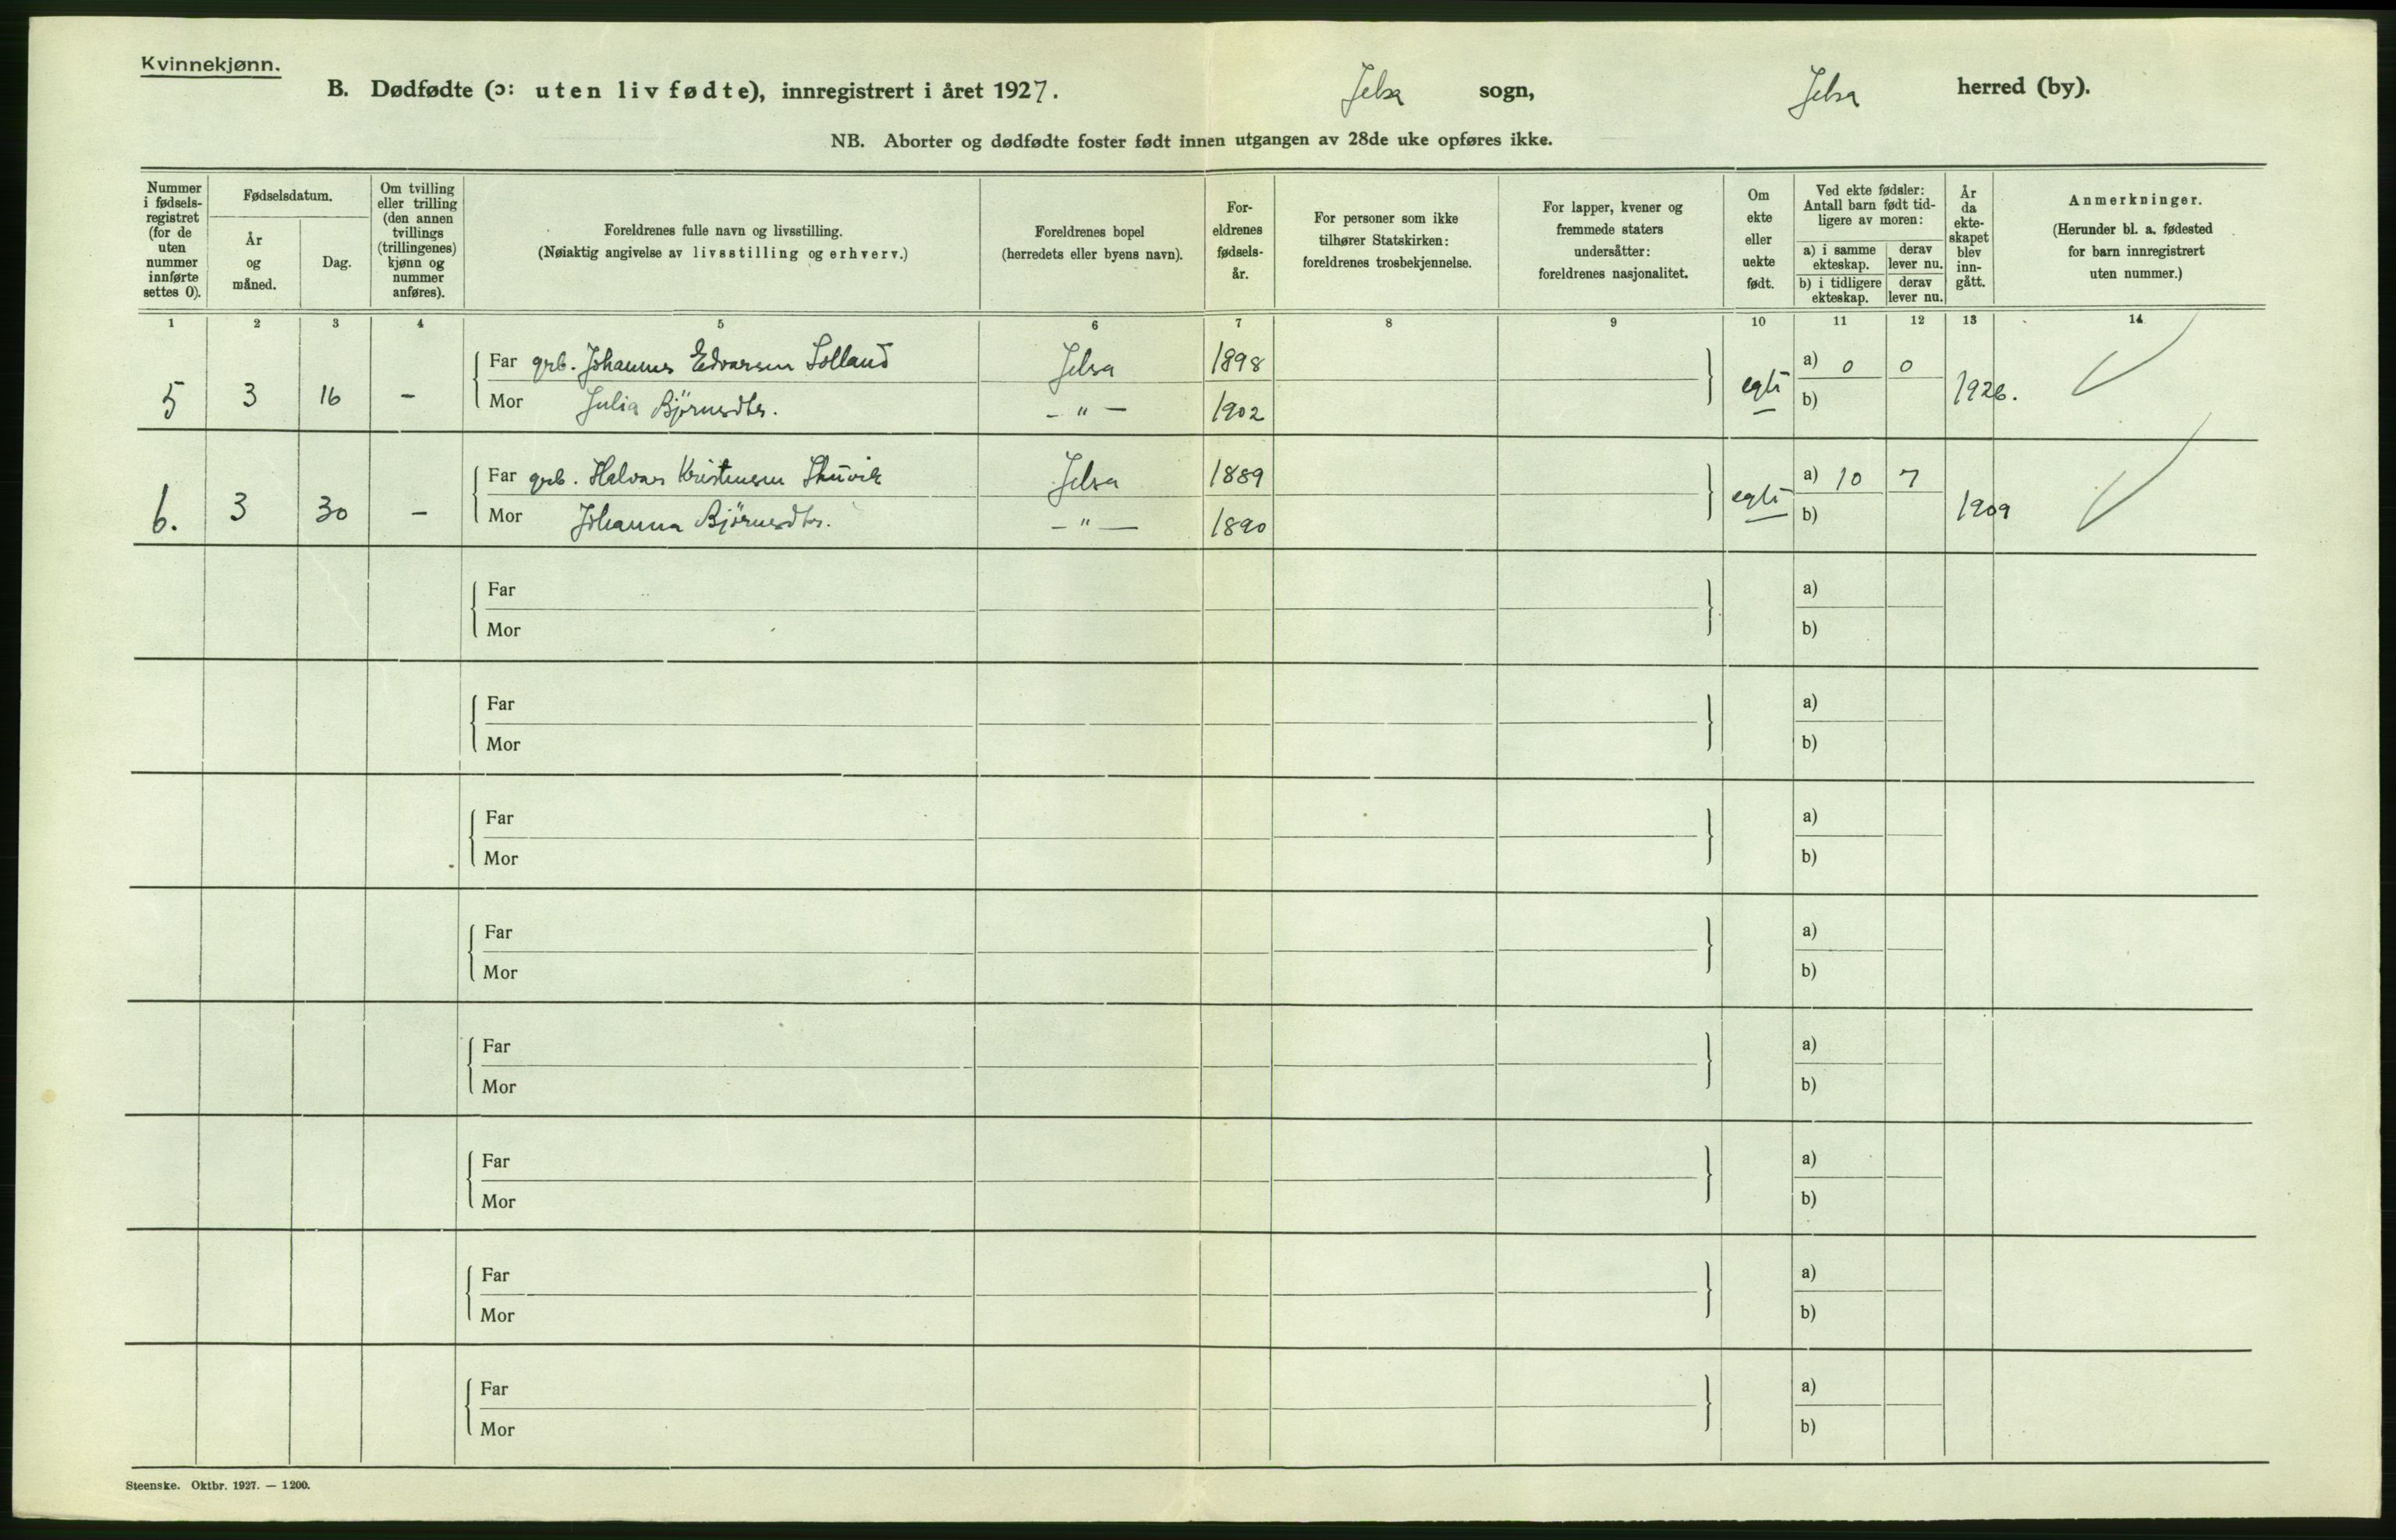 Kvinnekjønn.
B. Dødfødte (ɔ: uten liv fødte), innregistrert i året 1927. Jelsa sogn, Jelsa herred (by).
NB. Aborter og dødfødte foster født innen utgangen av 28de uke opføres ikke.
Nummer i fødselsregistret (for de uten nummer innførte settes 0).
Fødselsdatum.
År og måned.
Dag.
Om tvilling eller trilling (den annen tvillings (trillingenes) kjønn og nummer anføres).
Foreldrenes fulle navn og livsstilling.
(Nøiaktig angivelse av livsstilling og erhverv.)
Foreldrenes bopel
(herredets eller byens navn).
Foreldrenes fødselsår.
For personer som ikke tilhører Statskirken: foreldrenes trosbekjennelse.
For lapper, kvener og fremmede staters undersåtter: foreldrenes nasjonalitet.
Om ekte eller uekte født.
Ved ekte fødsler: Antall barn født tidligere av moren:
a) i samme ekteskap.
derav lever nu.
b) i tidligere ekteskap.
derav lever nu.
År da ekteskapet blev inngått.
Anmerkninger.
(Herunder bl. a. fødested for barn innregistrert uten nummer.)
1 2 3 4 5 6 7 8 9 10 11 12 13 14
5 3 16 - Far grb. Johannes Edvarsen Solland Jelsa 1898 egte a) 0 0 1926.
Mor Julia Bjørnsdtr. - " - 1902 b)
6. 3 30 - Far grb. Halvar Kristensen Jelsa 1889 egte a) 10 7 1909
Mor Johanna Bjørnsdtr. - " - 1890 b)
Far a)
Mor b)
Far a)
Mor b)
Far a)
Mor b)
Far a)
Mor b)
Far a)
Mor b)
Far a)
Mor b)
Far a)
Mor b)
Far a)
Mor b)
Steenske. Oktbr. 1927. — 1200.